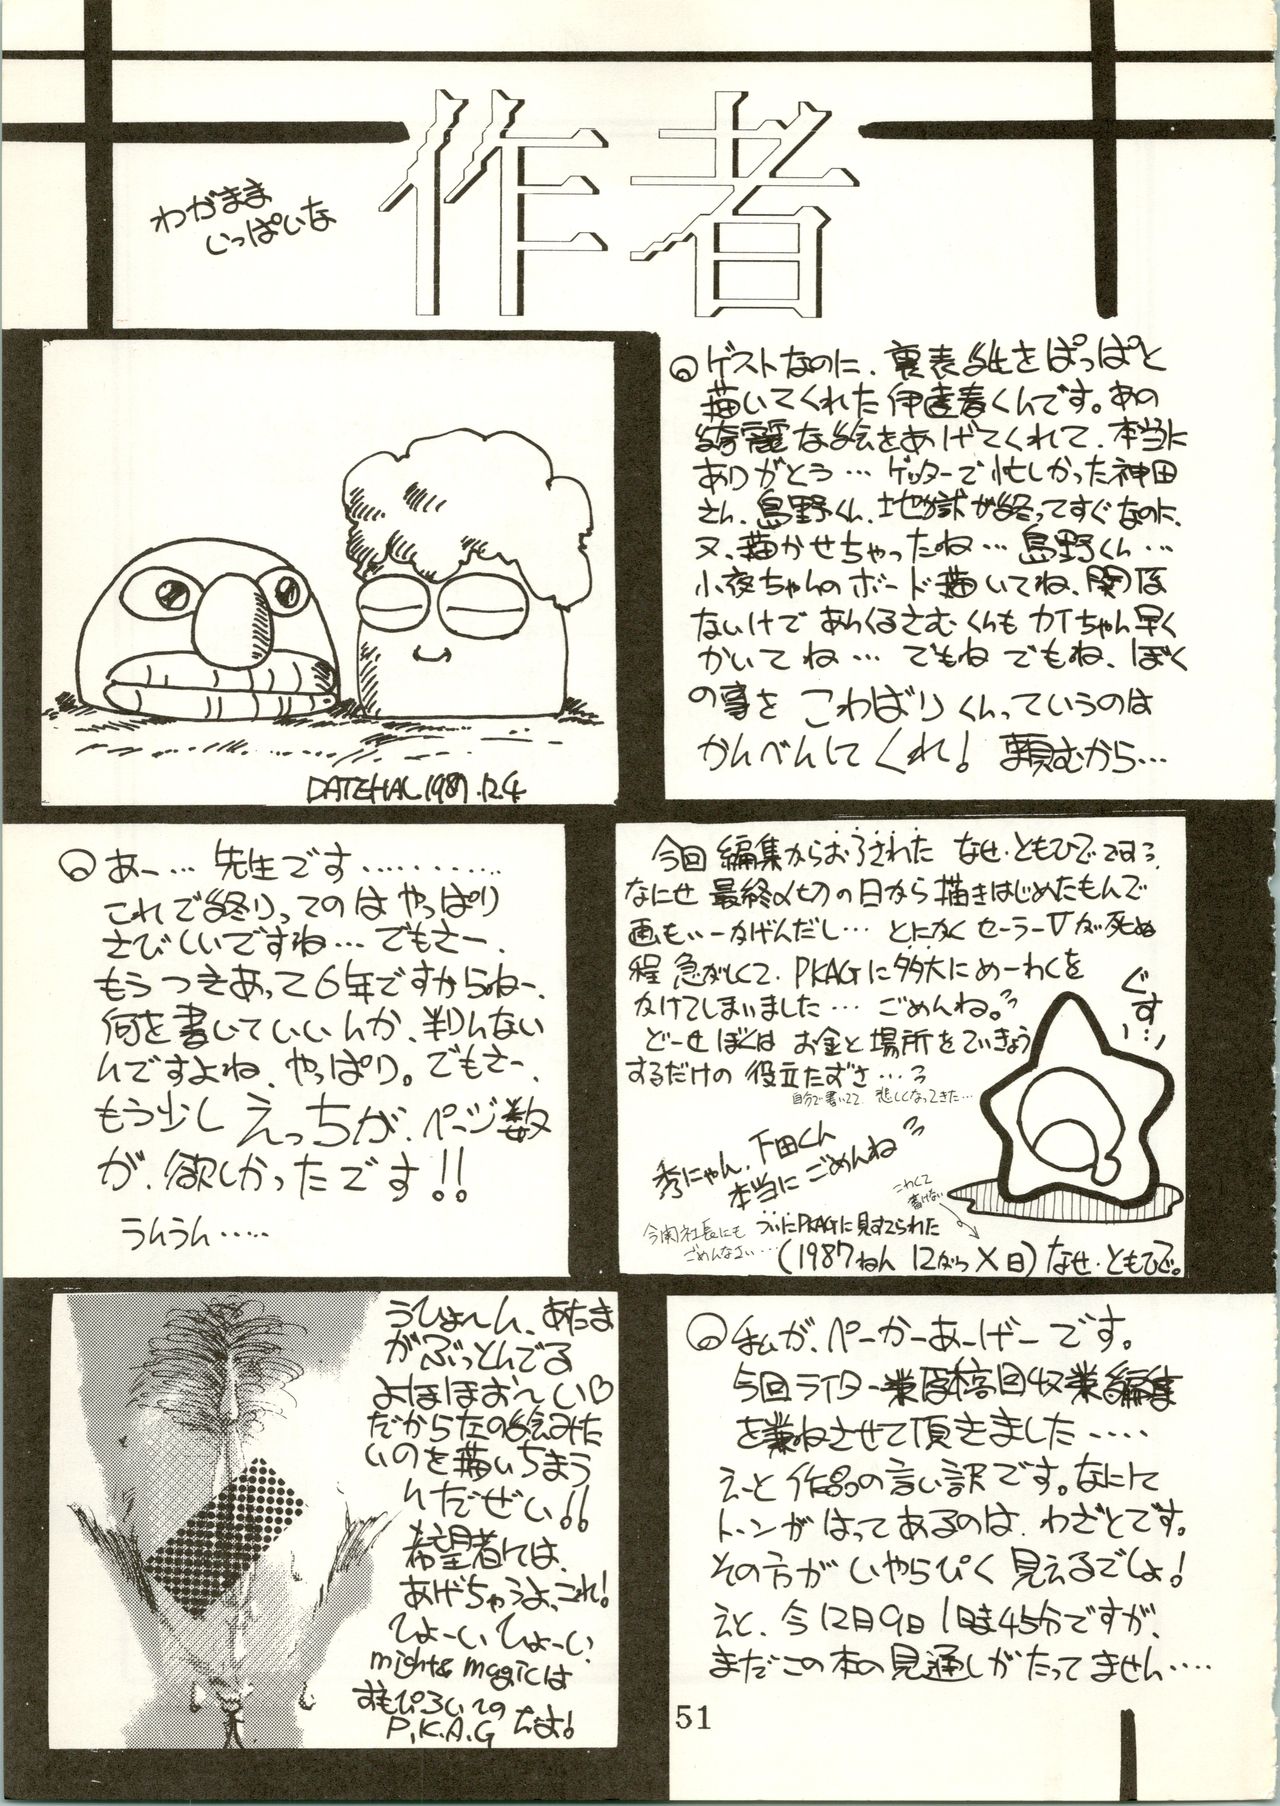 わがまま
いっぱいな
作者
ゲストなのに、裏表紙をぱっぱと
描いてくれた伊達春くんです。あの
綺麗な絵をあげてくれて、本当に
ありがとう… ゲッターで忙しかった神田
さん、島野くん、地獄が終ってすぐなのに、
又、描かせちゃったね… 島野くん…
小夜ちゃんのボード描いてね、関係
ないけで あんくるさむくんも カイちゃん早く
かいてね… でもね でもね、ぼく
の事を こわばりくんっていうのは
かんべんしてくれ! 頼むから…
DATEHAL 1987.12.4
あー… 先生です………
これで終りってのは やっぱり
さびしいですね… でもさー、
もうつきあって6年ですからねー、
何を書いていいんか、判んない
んですよね、やっぱり。でもさー、
もう少し えっちが、ページ数
が、欲しかったです!!
うんうん……
今回 編集からおろされた なせ・ともひで です。
なにせ 最終〆切の日から描きはじめたもんで
画もいーかげんだし… とにかく セーラーVが死ぬ
程 急がしくて、PKAGに多大にめーわくを
かけてしまいました… ごめんね。
どーせ ぼくは お金と場所をていきょう
するだけの 役立たずさ…
自分で書いてて 悲しくなってきた…
ぐすっ…
秀にゃん、下田くん
本当に ごめんね
こわくて
書けない
今関社長にも
ごめんなさい…
ついにPKAGに見すてられた
(1987ねん 12がつ X日) なせ・ともひで。
うひょ〜ん、あたま
がぶっとんでる
よほほお〜い♡
だから左の絵みた
いのを描いちまう
んだぜい!!
希望者には、
あげちゃうよ、これ!
ひょーい ひょーい、
might & magicは
おもぴろいの
P.K.A.G だよ!
私が、ぺーかーあーげーです。
今回ライター業原稿回収業編集
を兼ねさせて頂きました….
えーと 作品の言い訳です。なにして
トーンがはってあるのは、わざとです。
その方が いやらぴく 見えるでしょ!
えと、今12月9日 1時45分ですが、
まだこの本の見通しがたってません….
51